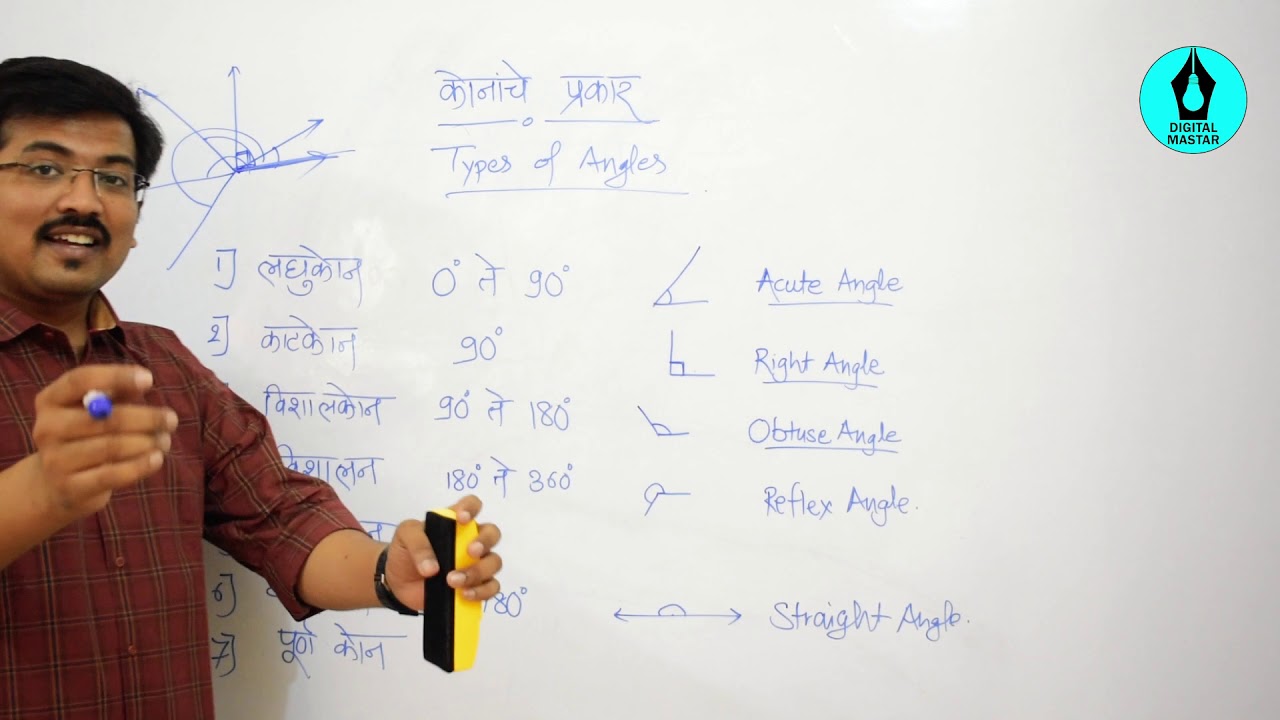 DIGITAL
MASTAR
कोनांचे प्रकार
Types of Angles
1] लघुकोन 0° ते 90° Acute Angle
2] काटकोन 90° Right Angle
विशालकोन 90° ते 180° Obtuse Angle
विशालन 180° ते 360° Reflex Angle.
६] 180° Straight Angle.
7] पूर्ण कोन